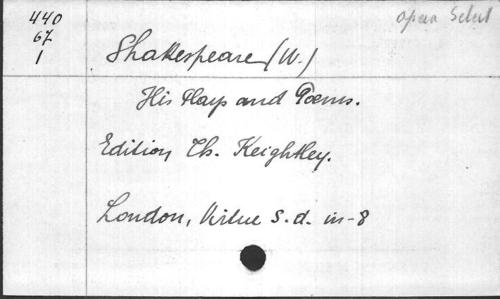 440
67
1
opera Select
Shakespeare (W.)
His Plays and Poems.
Edition Th. Keightley.
London, Virtue s. d. in-8